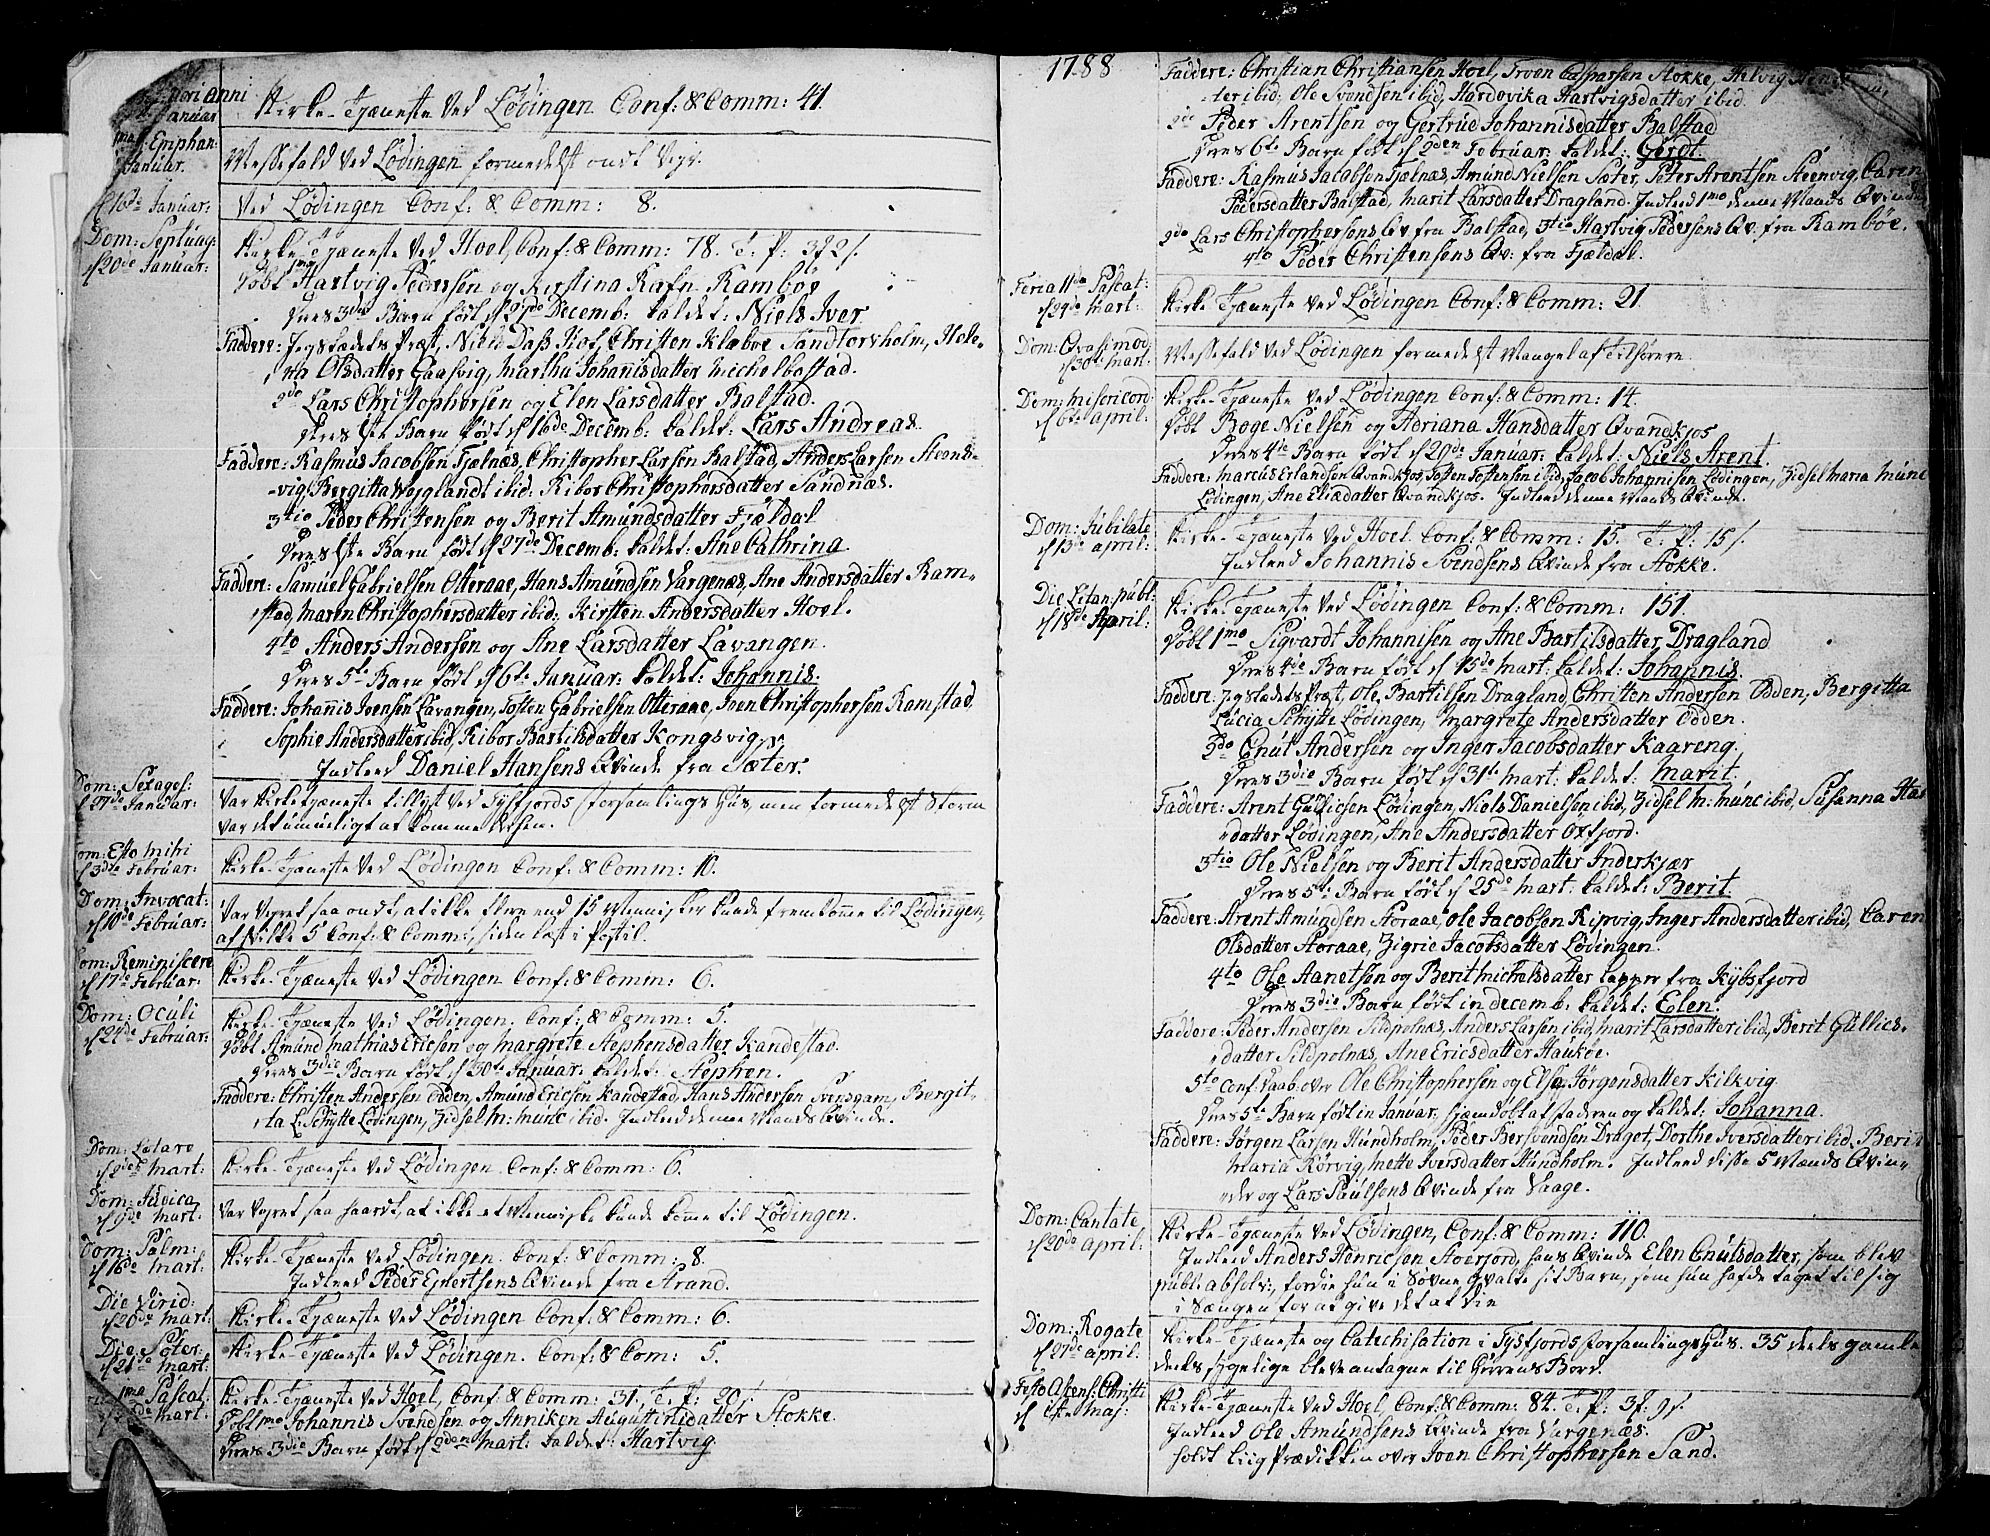 Kirke-Tjæneste ved Lødingen Conf: & Comm: 41.
1ma Epiphan: Januar. Messefald ved Lødingen formedelst ondt Vejr.
d 16de Januar: Ved Lødingen Conf: & Comm: 8.
Dom: Septuag: Kirke-Tjæneste ved Hoel, Conf: & Comm: 78. T. P: 3f 2/.
d 20de Januar: Døbt 1mo Hartvig Pedersen og Kirstina Rafn Rambøe
Deres 3die Barn født d 27de Decemb: kaldet: Niels Iver
Faddere: Jeg stædets Præst, Niels Dass Hof, Christen Klæboe Sandtorvholm, Hele-
na Olsdatter Gaasvig, Martha Johannisdatter Michelbostad.
2do Lars Christophersen og Elen Larsdatter Balstad.
Deres 1ste Barn født d 16de Decemb: kaldet: Lars Andreas.
Faddere: Rasmus Jacobsen Fjelnæs, Christopher Larsen Balstad, Anders Larsen Steens-
-vig, Bergitta Weyglandt ibid: Kibor Christophersdatter Sandnæs.
3tio Peder Christensen og Berit Amundsdatter Fjældal
Deres 1ste Barn født d 27de Decemb: kaldet: Ane Cathrina
Faddere: Samuel Gabrielsen Otteraae, Hans Amundsen Vargenæs, Ane Andersdatter Ram-
stad, Maren Christophersdatter ibid: Kirsten Andersdatter Hoel.
4to Anders Andersen og Ane Larsdatter Lavangen.
Deres 5te Barn født d 6te Januar: kaldet: Johannis.
Faddere: Johannis Joensen Lavangen, Tosten Gabrielsen Otteraae, Joen Christophersen Ramstad,
Sophie Andersdatter ibid, Kibor Bartilsdatter Kongsvig.
Indleed Daniel Hansens Qvinde fra Sæter.
Dom: Sexages: d 27de Januar: Var Kirketjæneste tillyst ved Tysfjords Forsamlings Huus, men formedelst Storm
var det umueligt at komme dersen.
Dom: Esto Mihi d 3die Februar: Kirke-Tjæneste ved Lødingen Conf: & Comm: 10.
Dom: Invocat: d 10de Februar: Var Vejret saa ondt, at ikke flere end 15 Mennisker kunde fremkomme til Lødingen,
af hvilke 5 Conf: & Comm:, siden læst i Postil.
Dom: Reminiscere d 17de Februar: Kirke-Tjæneste ved Lødingen Conf: & Comm: 6.
Dom: Oculi d 24de Februar: Kirke-Tjæneste ved Lødingen. Conf: & Comm: 5.
Døbt Amund Mathias Ericsen og Margrete Stephensdatter Kandestad.
Deres 3die Barn født d 30te Januar: kaldet: Stephen.
Faddere: Christen Andersen Odden, Amund Ericsen Kandestad, Hans Andersen Svensgam, Bergit-
ta L: Schytte Lødingen, Zidsel M: Munc ibid. Indleed denne Mands Qvinde.
Dom: Lætare d 2den Mart: Kirke-Tjæneste ved Lødingen. Conf: & Comm: 6.
Dom: Judica d 9de Mart: Var Vejret saa haardt, at ikke et Menniske kunde komme til Lødingen.
Dom: Palm: d 16de Mart: Kirke-Tjæneste ved Lødingen. Conf: & Comm: 8.
Indleed Peder Evertsens Qvinde fra Strand.
Die Virid: d 20de Mart: Kirke-Tjæneste ved Lødingen Conf: & Comm: 6.
Die Soter: d 21de Mart: Kirke-Tjæneste ved Lødingen. Conf: & Com: 5.
1ma Pascat: Mart: Kirke-Tjæneste ved Hoel, Conf: & Comm: 31, T. P: 20/.
Døbt 1mo Johannis Svendsen og Anniken Augustinsdatter Stokke.
Deres 3die Barn født d 2den Mart: kaldet: Hartvig.
1788
Faddere: Christian Christiansen Hoel, Troen Casparsen Stokke, Helvig
-ter ibid; Ole Svendsen ibid, Hardovika Hartvigsdatter ibid.
2do Peder Arentsen og Gertrud Johannisdatter Balstad
Deres 6te Barn født d 2den Februar: kaldet: Gerdt.
Faddere: Rasmus Jacobsen Fjelnæs, Amund Nielsen Sæter, Peter Arentsen Steenvig, Caren
Pedersdatter Balstad, Marit Larsdatter Dragland. Indleed 1mo denne Mands Qvinde
2do Lars Christophersens Qv. fra Balstad, 3tio Hartvig Pedersens Qv. fra Rambøe.
4to Peder Christensens Qv: fra Fjældal.
Feria IIda Pascat: d 24de Mart: Kirke-Tjæneste ved Lødingen Conf: & Comm: 21.
Dom: Qvasimod: d 30te Mart: Messefald ved Lødingen formedelst Mangel af Tilhørere.
Dom: Misericord: d 6te April: Kirke-Tjæneste ved Lødingen Conf: & Comm: 14.
Døbt Boge Nielsen og Adriana Hansdatter Qvandkjos
Deres 4de Barn født d 29de Januar: kaldet: Niels Arent.
Faddere: Marcus Erlandsen Qvandkjos, Tosten Tostensen ibid, Jacob Johannisen Lødingen, Zidsel Maria Munc
Lødingen, Ane Eliædatter Qvandkjos. Indleed denne Mands Qvinde.
Dom: Jubilate d 13de April: Kirke-Tjæneste ved Hoel. Conf: & Comm: 15. T. P: 15/.
Indleed Johannis Svendsens Qvinde fra Stokke.
Die Litan: publ: d 18de April: Kirke-Tjæneste ved Lødingen Conf: & Comm: 151.
Døbt 1mo Sigvardt Johannisen og Ane Bartilsdatter Dragland
Deres 4de Barn født d 15de Mart: kaldet: Johannis.
Faddere: Jeg stædets Præst, Ole Bartilsen Dragland, Christen Andersen Odden, Bergitta
Lucia Schytte Lødingen, Margrete Andersdatter Odden.
2do Cnut Andersen og Inger Jacobsdatter Kaareng.
Deres 3die Barn født d 31te Mart: kaldet: Marit.
Faddere: Arent Gullicsen Lødingen, Niels Danielsen ibid, Zidsel M: Munc ibid, Susanna Has
datter Lødingen, Ane Andersdatter Oxfjord.
3tio Ole Nielsen og Berit Andersdatter Inderkjær
Deres 5te Barn født d 25de Mart: kaldet: Berit.
Faddere: Arent Amundsen Storaae, Ole Jacobsen Ripvig, Inger Andersdatter ibid, Caren
Olsdatter Storaae, Zigrie Jacobsdatter Lødingen.
4to Ole Aanetsen og Berit Michelsdatter Lapper fra Kybsfjord
Deres 3die Barn født in Decemb: kaldet: Elen.
Faddere: Peder Andersen Sildpolnæs, Anders Larsen ibid, Marit Larsdatter ibid, Berit Gullics-
datter Sildpolnæs, Ane Ericsdatter Haukøe.
5to Conf: Daab over Ole Christophersen og Else Jørgensdatter Kilkvig
Deres 5te Barn født in Januar, hjemdøbt af Faderen og kaldet: Johanna.
Faddere: Jørgen Larsen Hundholm, Peder Bersvendsen Draget, Dorthe Iversdatter ibid, Berit
Maria Rørvig, Mette Iversdatter Hundholm. Indleed disse 5 Mænds Qvin-
der og Lars Paulsens Qvinde fra Vaage.
Dom: Cantate, d 20de April: Kirke-Tjæneste ved Lødingen, Conf: & Comm: 110.
Indleed Anders Henricsen Stoerjord, hans Qvinde Elen Cnutsdatter, som blev
publ: absolv:, fordie hun i Søvne qvalte sit Barn, som hun hafde taget til sig
i Sængen for at give det at die
Dom: Rogate d 27de April: Kirke-Tjæneste og Catechisation i Tysfjords Forsamlings Huus. 35 deels gamle
deels sygelige bleve antagne til Herrens Bord.
Festo Ascens: Christi d 1ste Maj: Kirke-Tjæneste ved Hoel, Conf: & Comm: 84. T. P: 3f. 9/.
Indleed Ole Amundsens Qvinde fra Vargenæs.
Holdt Liig Prædikken over Joen Christophersen Sand.